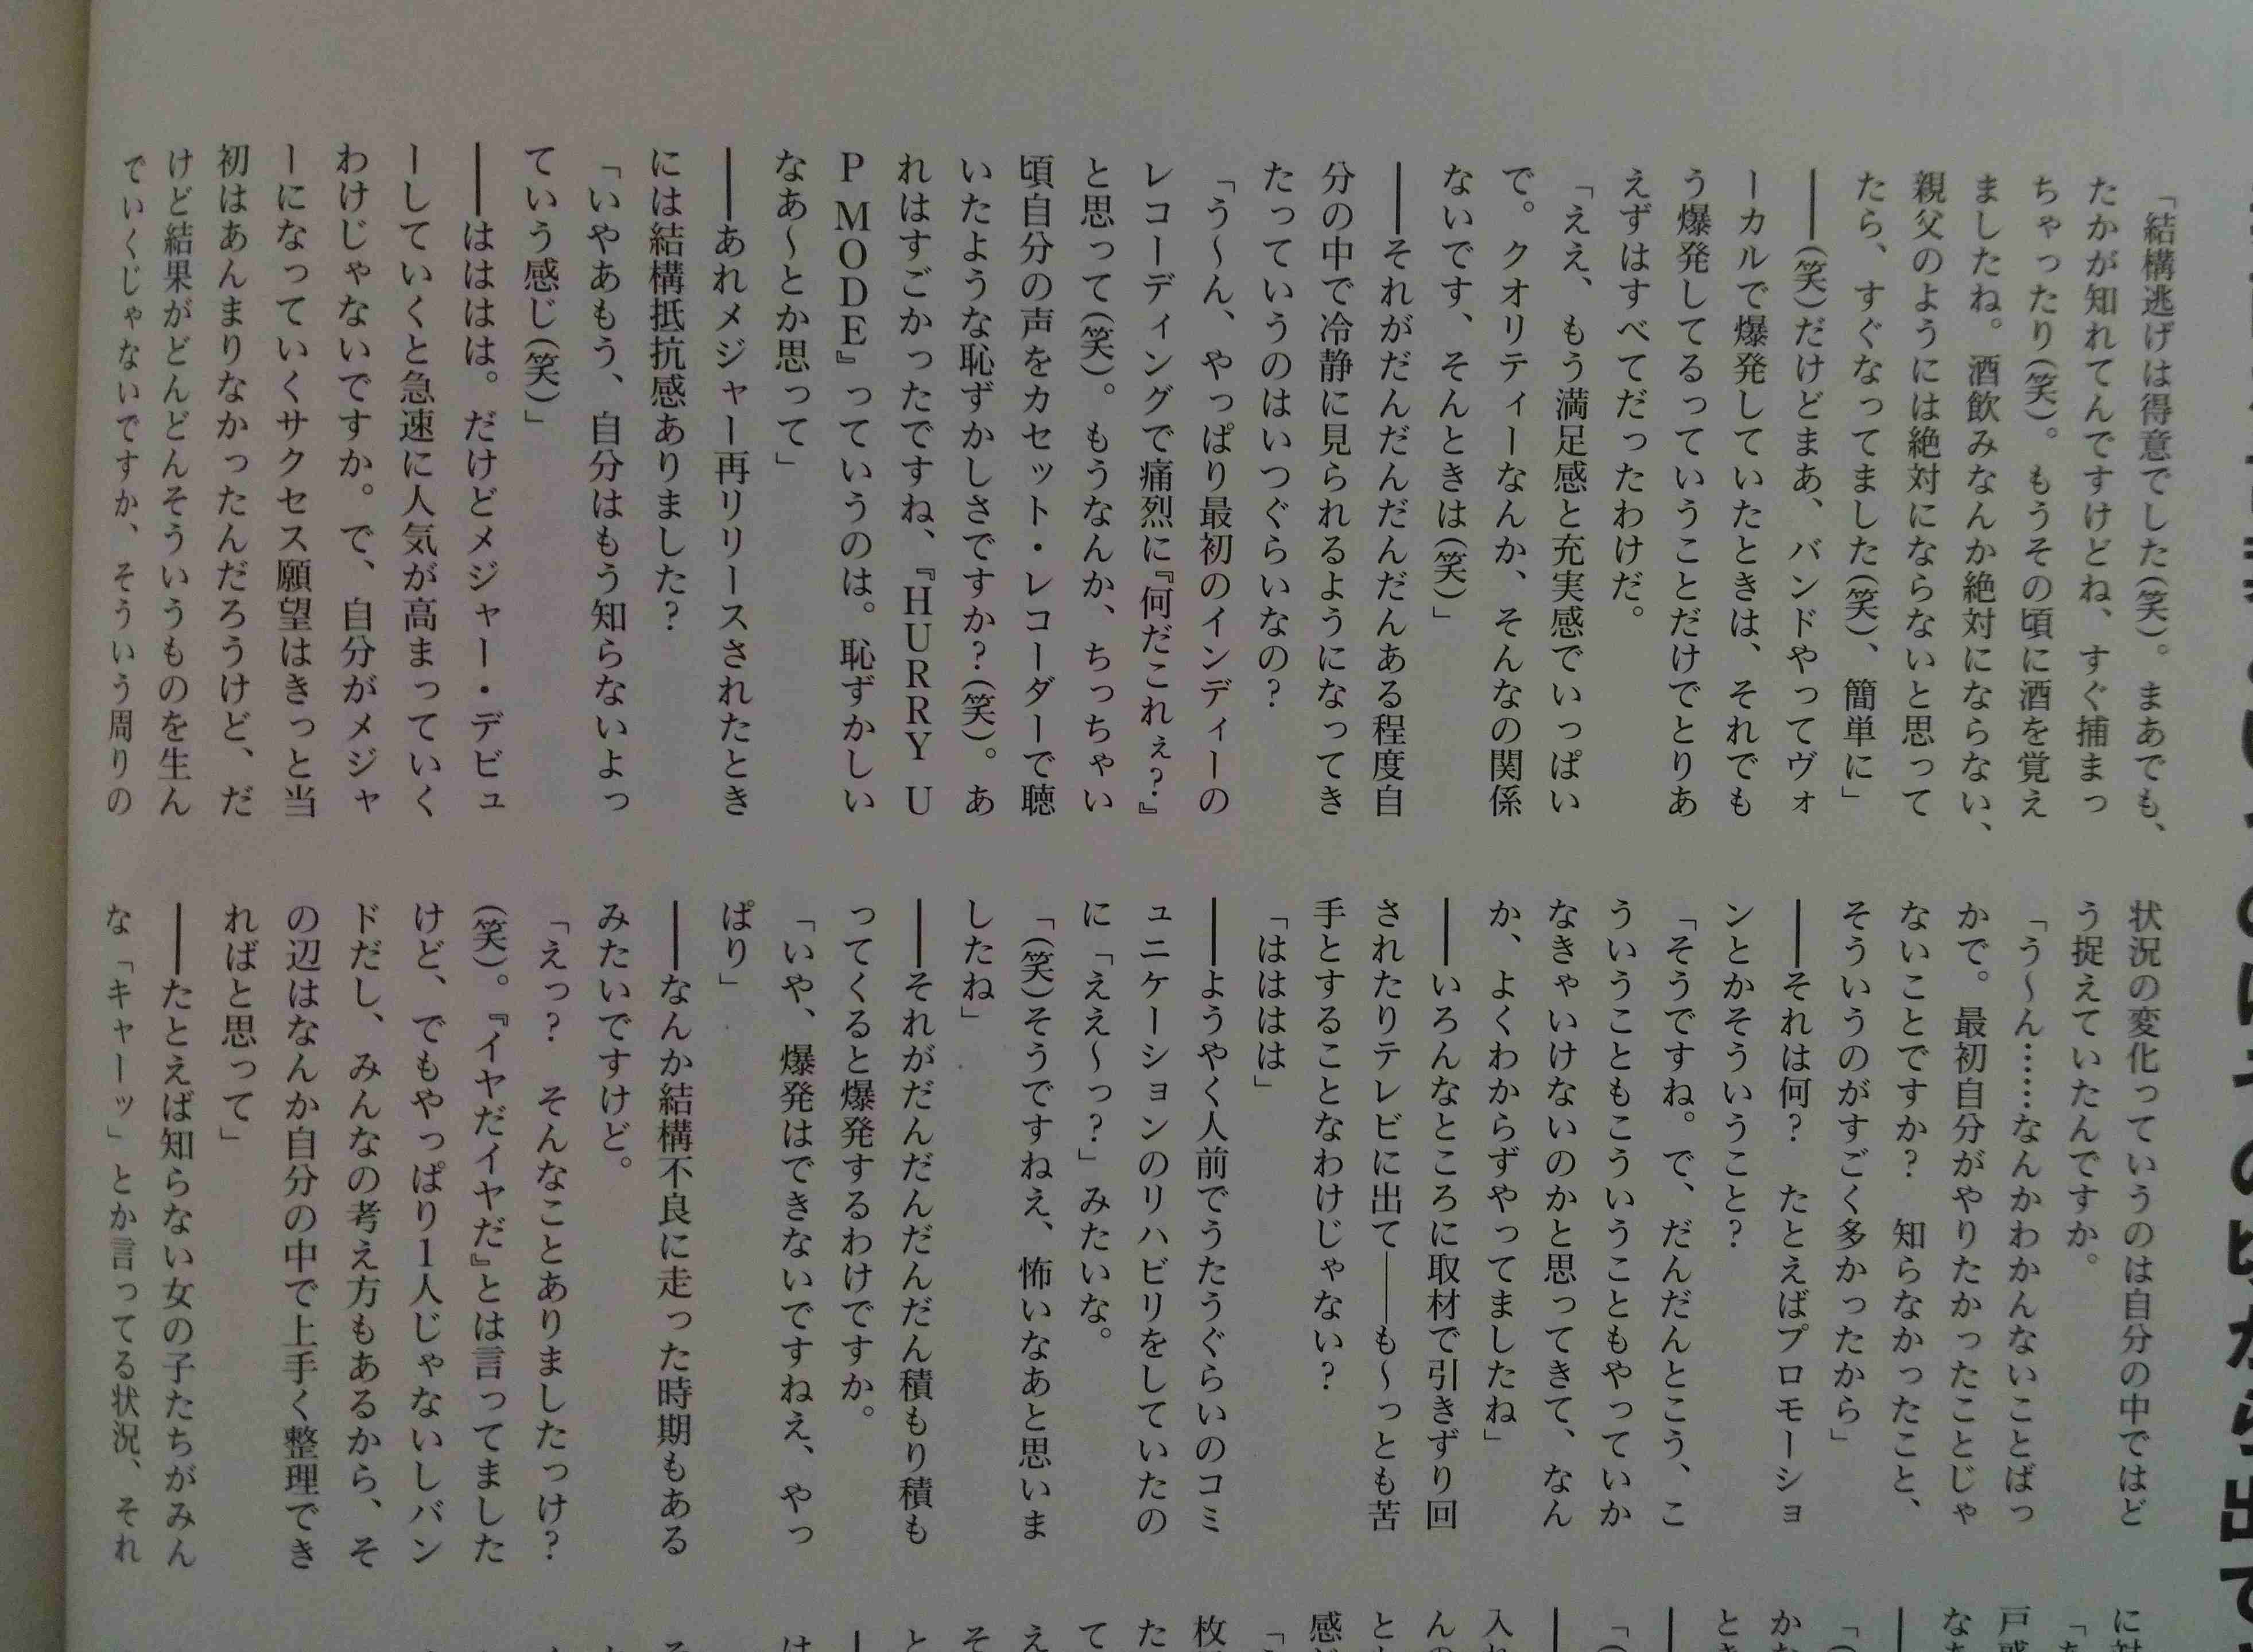 「結構逃げは得意でした(笑)。まあでも、
たかが知れてんですけどね、すぐ捕まっ
ちゃったり(笑)。もうその頃に酒を覚え
ましたね。酒飲みなんか絶対にならない、
親父のようには絶対にならないと思って
たら、すぐなってました(笑)、簡単に」
――(笑)だけどまあ、バンドやってヴォ
ーカルで爆発していたときは、それでも
う爆発してるっていうことだけでとりあ
えずはすべてだったわけだ。
「ええ、もう満足感と充実感でいっぱい
で。クオリティーなんか、そんなの関係
ないです、そんときは(笑)」
――それがだんだんだんだんある程度自
分の中で冷静に見られるようになってき
たっていうのはいつぐらいなの?
「う〜ん、やっぱり最初のインディーの
レコーディングで痛烈に『何だこれぇ?』
と思って(笑)。もうなんか、ちっちゃい
頃自分の声をカセット・レコーダーで聴
いたような恥ずかしさですか?(笑)。あ
れはすごかったですね、『HURRY U
P MODE』っていうのは。恥ずかしい
なあ〜とか思って」
――あれメジャー再リリースされたとき
には結構抵抗感ありました?
「いやあもう、自分はもう知らないよっ
ていう感じ(笑)」
――はははは。だけどメジャー・デビュ
ーしていくと急速に人気が高まっていく
わけじゃないですか。で、自分がメジャ
ーになっていくサクセス願望はきっと当
初はあんまりなかったんだろうけど、だ
けど結果がどんどんそういうものを生ん
でいくじゃないですか、そういう周りの
状況の変化っていうのは自分の中ではど
う捉えていたんですか。
「う〜ん……なんかわかんないことばっ
かで。最初自分がやりたかったことじゃ
ないことですか? 知らなかったこと、
そういうのがすごく多かったから」
――それは何? たとえばプロモーショ
ンとかそういうこと?
「そうですね。で、だんだんとこう、こ
ういうこともこういうこともやっていか
なきゃいけないのかと思ってきて、なん
か、よくわからずやってましたね」
――いろんなところに取材で引きずり回
されたりテレビに出て――も〜っとも苦
手とすることなわけじゃない?
「はははは」
――ようやく人前でうたうぐらいのコミ
ュニケーションのリハビリをしていたの
に「ええ〜っ?」みたいな。
「(笑)そうですねえ、怖いなあと思いま
したね」
――それがだんだんだんだん積もり積も
ってくると爆発するわけですか。
「いや、爆発はできないですねえ、やっ
ぱり」
――なんか結構不良に走った時期もある
みたいですけど。
「えっ? そんなことありましたっけ?
(笑)。『イヤだイヤだ』とは言ってました
けど、でもやっぱり1人じゃないしバン
ドだし、みんなの考え方もあるから、そ
の辺はなんか自分の中で上手く整理でき
ればと思って」
――たとえば知らない女の子たちがみん
な「キャーッ」とか言ってる状況、それ